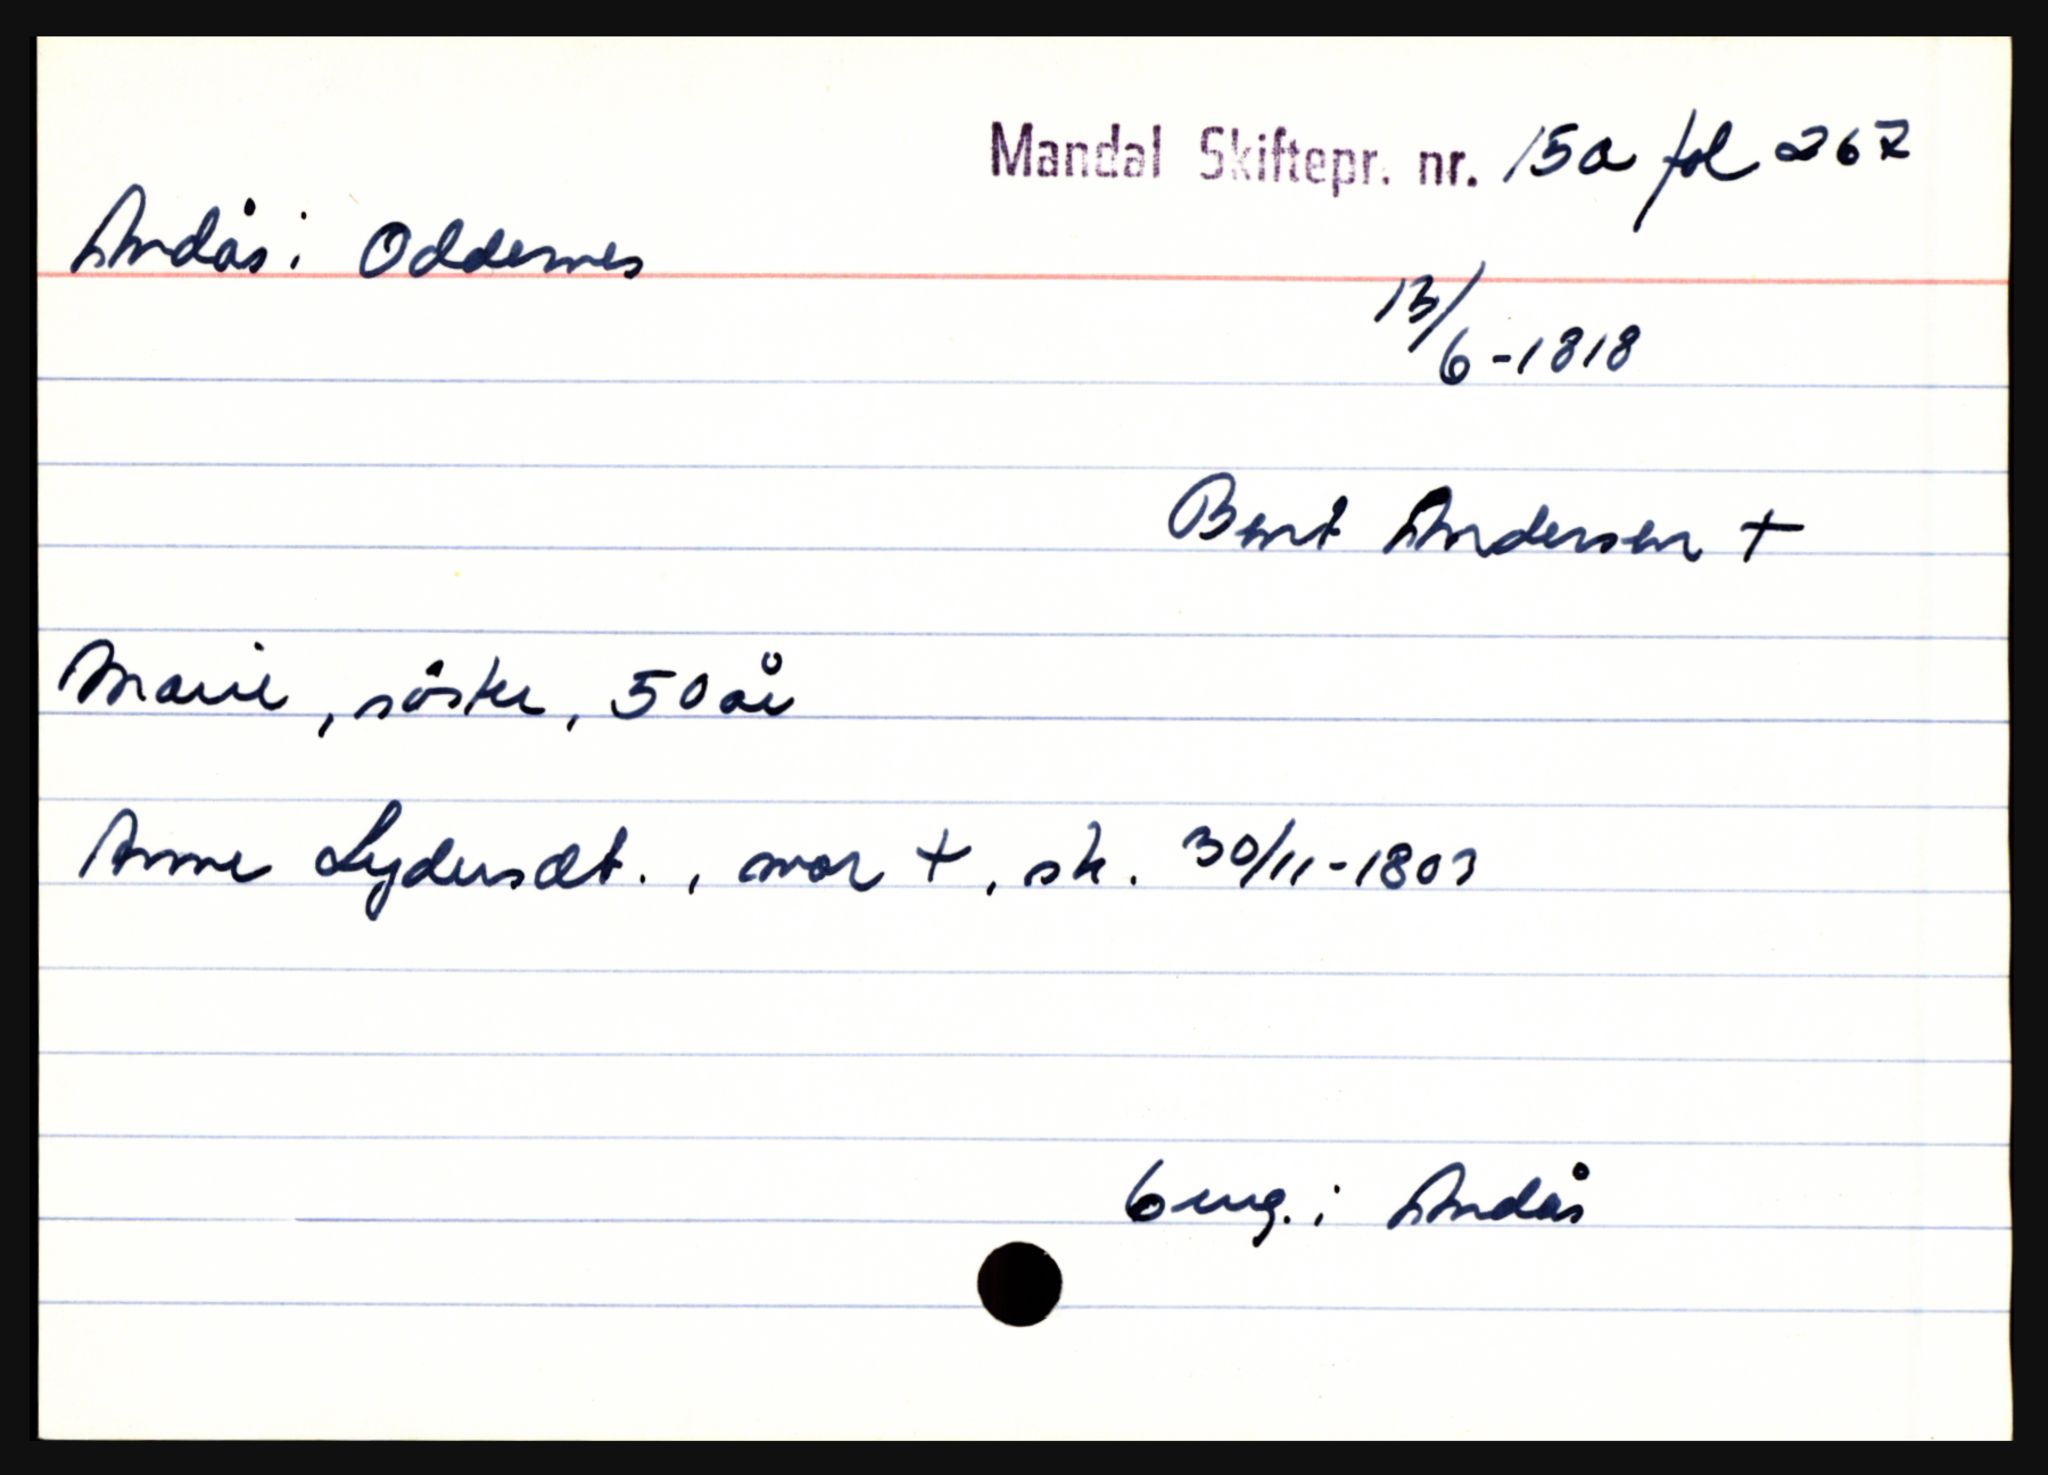 Mandal Skiftepr. nr. 15a fol 267
Andås i Oddernes
13/6-1818
Bent Andersen +
Marie, söster, 50 år
Anne Lydersdt., mor +, sk. 30/11-1803
6 eng. i Andås